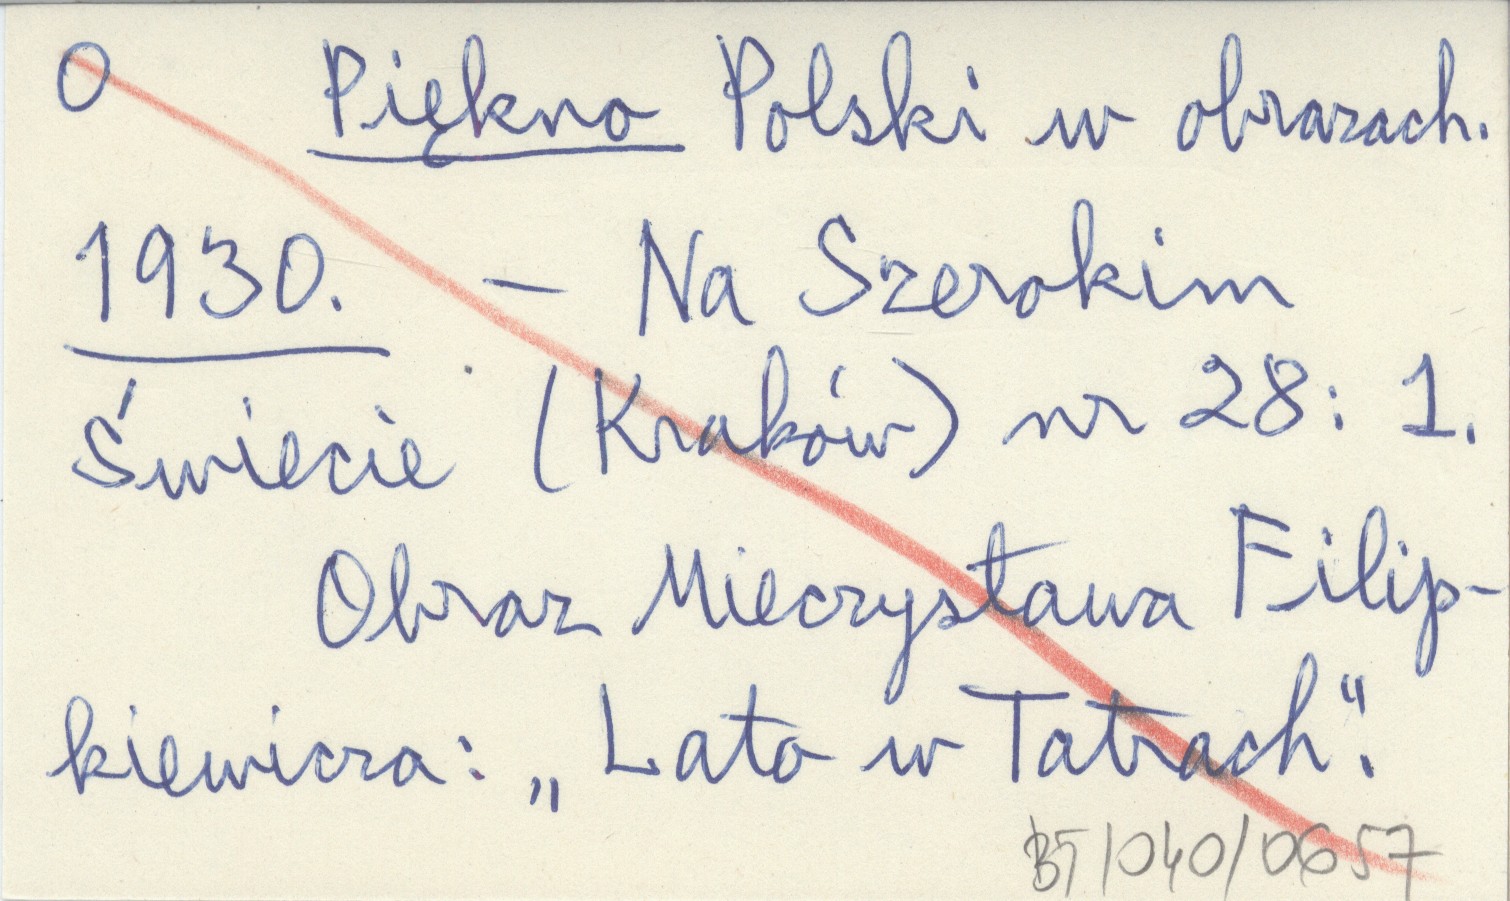 O Piękno Polski w obrazach.
1930. – Na Szerokim
Świecie (Kraków) nr 28: 1.
Obraz Mieczysława Filip-
kiewicza: „Lato w Tatrach".
BT/040/0657